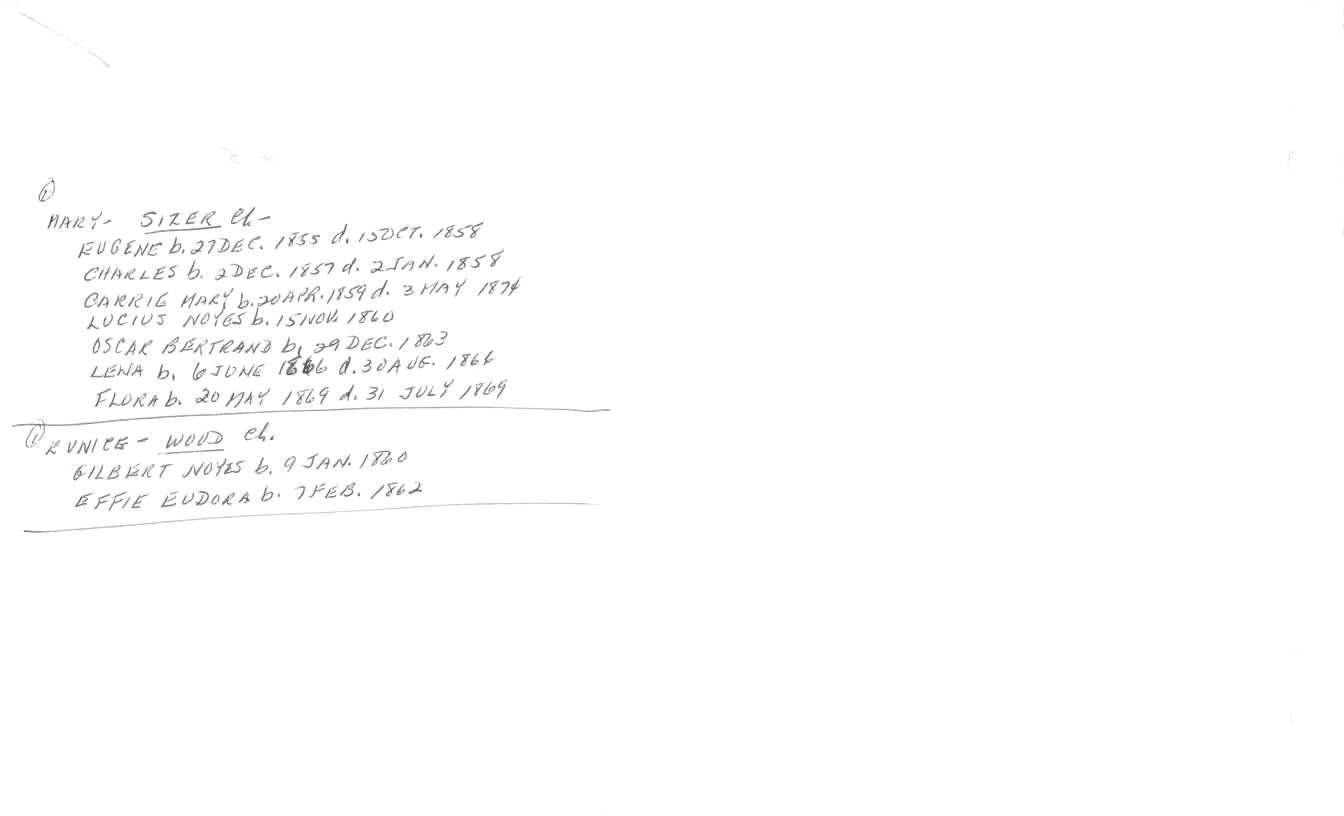 ②
MARY- SIZER Ch-
EUGENE b. 27 DEC. 1855 d. 15 OCT. 1858
CHARLES b. 2 DEC. 1857 d. 2 JAN. 1858
CARRIE MARY b. 20 APR. 1859 d. 3 MAY 1874
LUCIUS NOYES b. 15 NOV. 1860
OSCAR BERTRAND b. 29 DEC. 1863
LENA b. 6 JUNE 1866 d. 30 AUG. 1866
FLORA b. 20 MAY 1869 d. 31 JULY 1869
① EUNICE- WOOD Ch.
GILBERT NOYES b. 9 JAN. 1860
EFFIE EUDORA b. 7 FEB. 1862